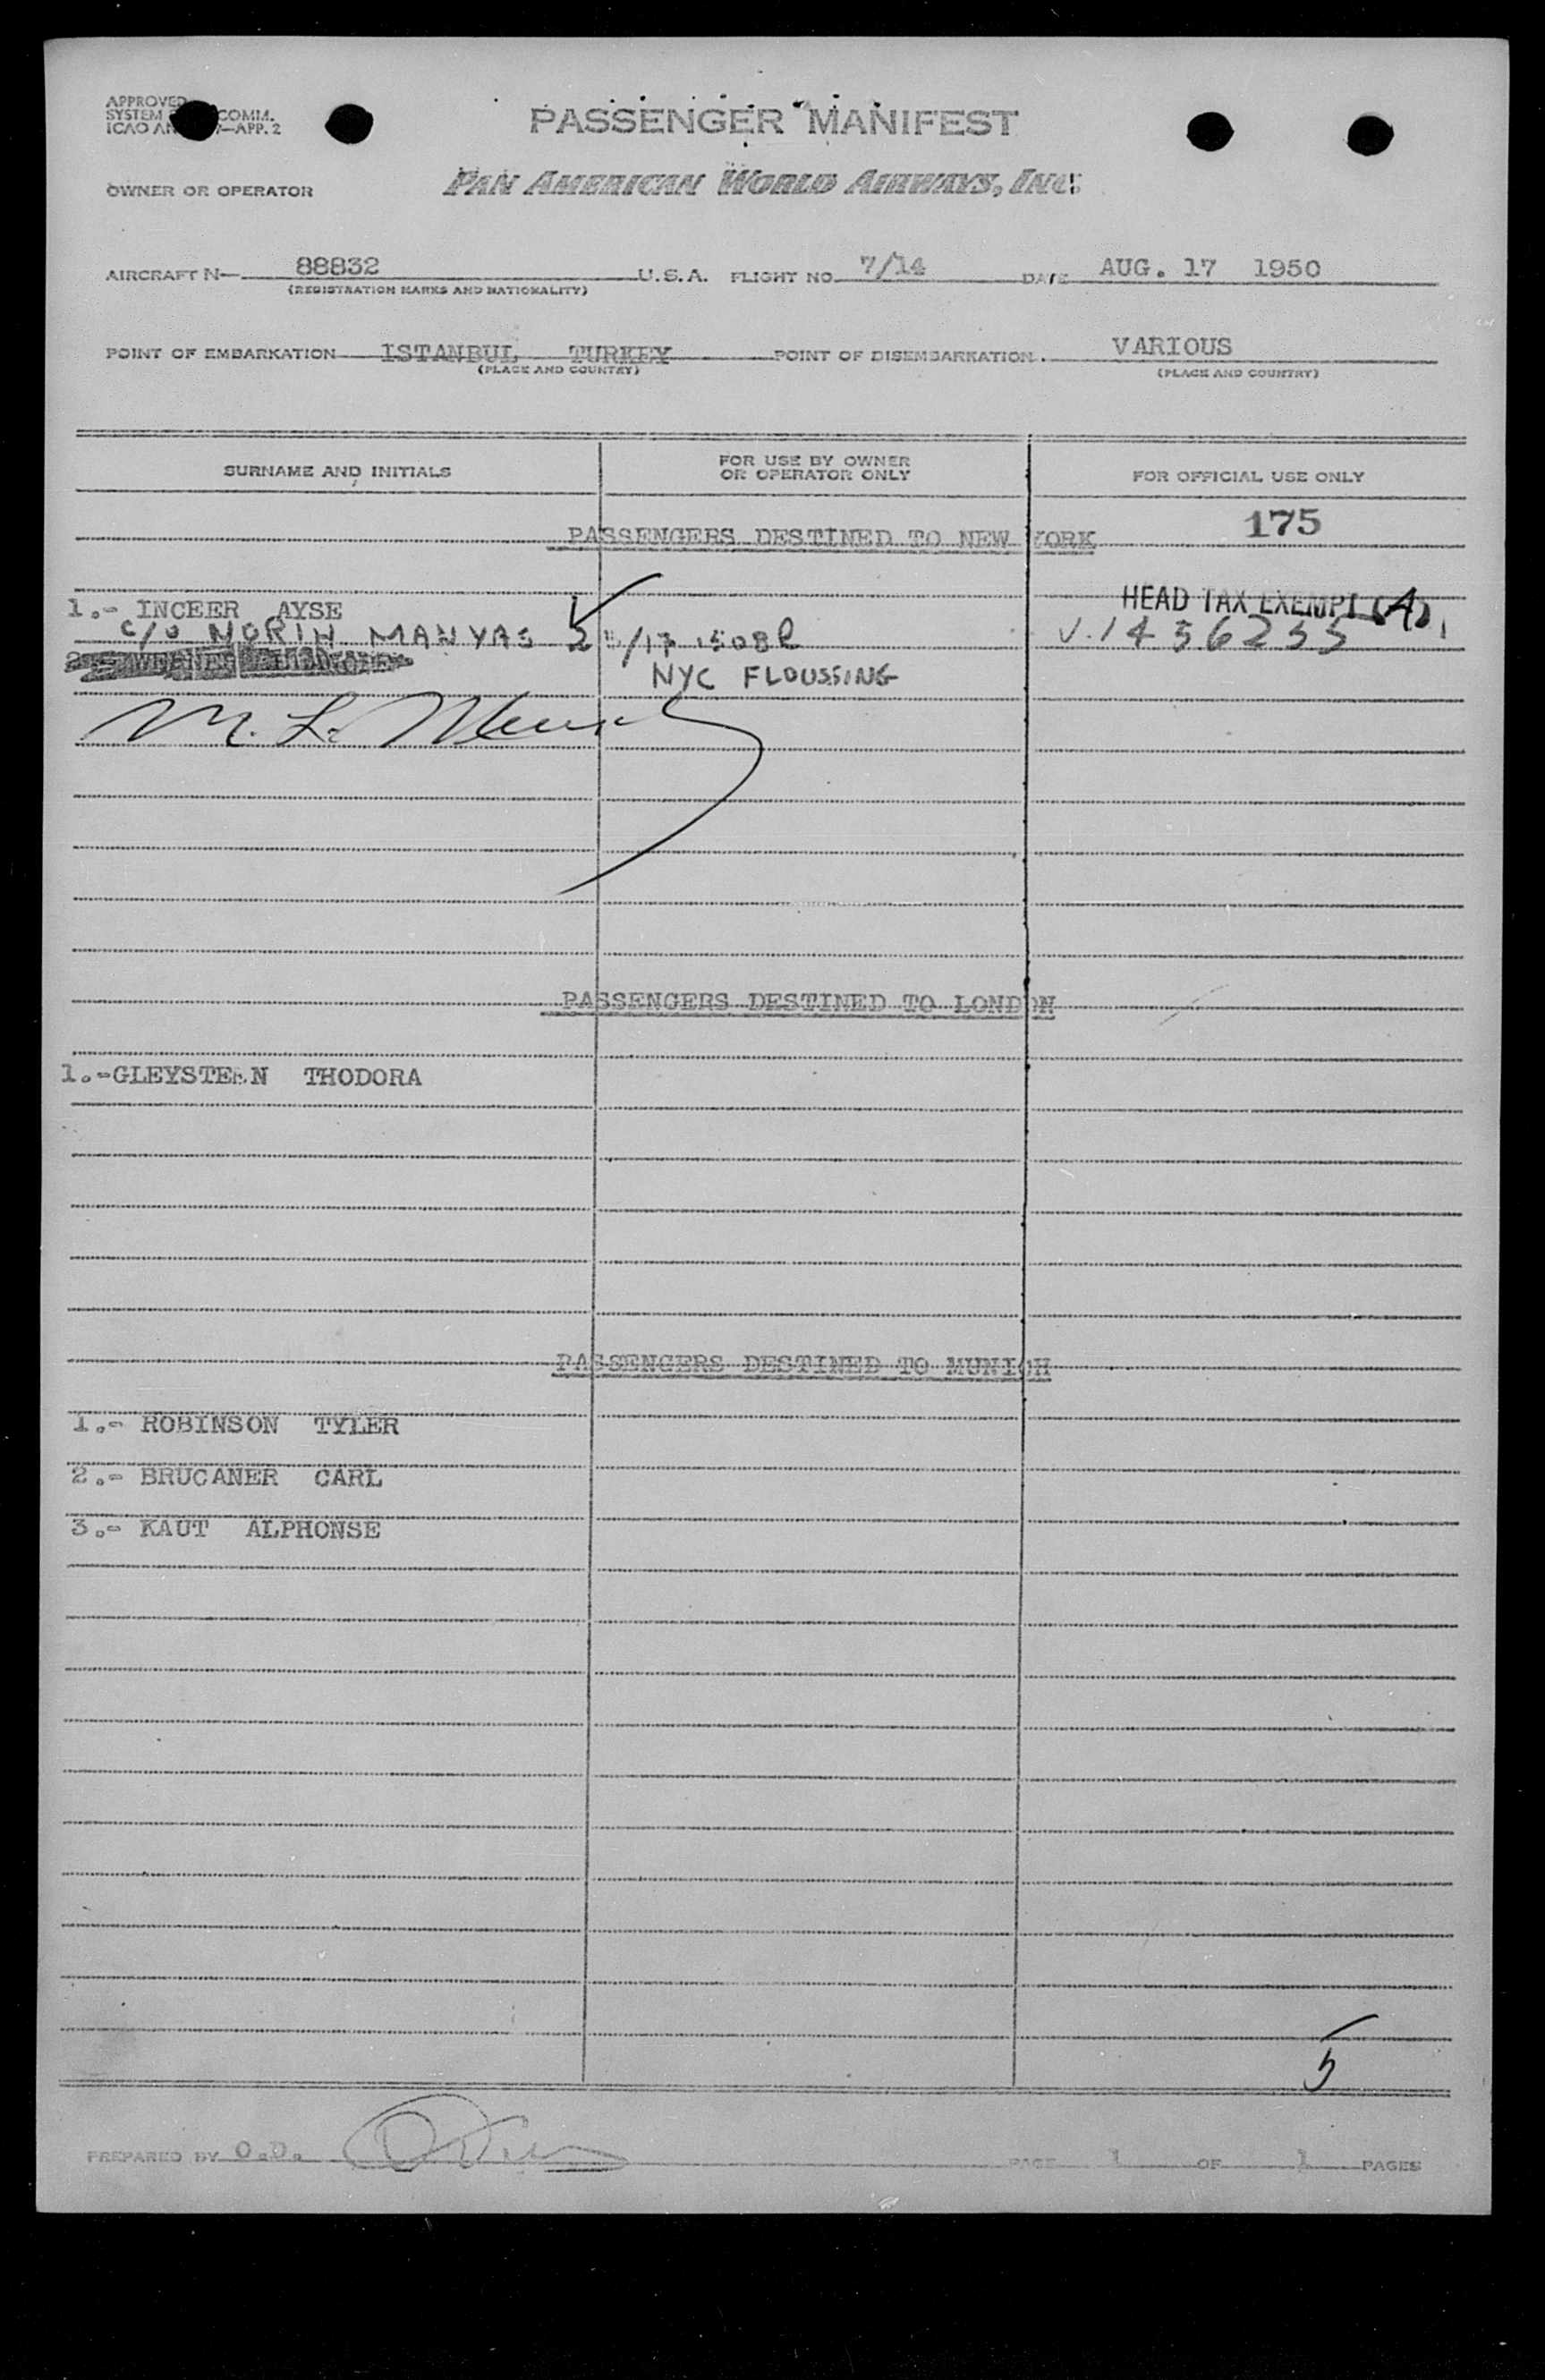 APPROVED
SYSTEM COMM.
ICAO AN 7—APP. 2
PASSENGER MANIFEST
OWNER OR OPERATOR PAN AMERICAN WORLD AIRWAYS, INC.
AIRCRAFT N— 88832 U.S.A. FLIGHT NO. 7/14 DATE AUG. 17 1950
(REGISTRATION MARKS AND NATIONALITY)
POINT OF EMBARKATION ISTANBUL TURKEY POINT OF DISEMBARKATION. VARIOUS
(PLACE AND COUNTRY) (PLACE AND COUNTRY)
SURNAME AND INITIALS FOR USE BY OWNER OR OPERATOR ONLY FOR OFFICIAL USE ONLY
175
PASSENGERS DESTINED TO NEW YORK
1.- INCEER AYSE HEAD TAX EXEMPT (A)
C/O NORIN MANYAS
NYC FLOUSSING
M. L.
PASSENGERS DESTINED TO LONDON
1.-GLEYSTEEN THODORA
PASSENGERS DESTINED TO MUNICH
1.- ROBINSON TYLER
2.- BRUCANER CARL
3.- KAUT ALPHONSE
5
PREPARED BY O.D. PAGE 1 OF 1 PAGES